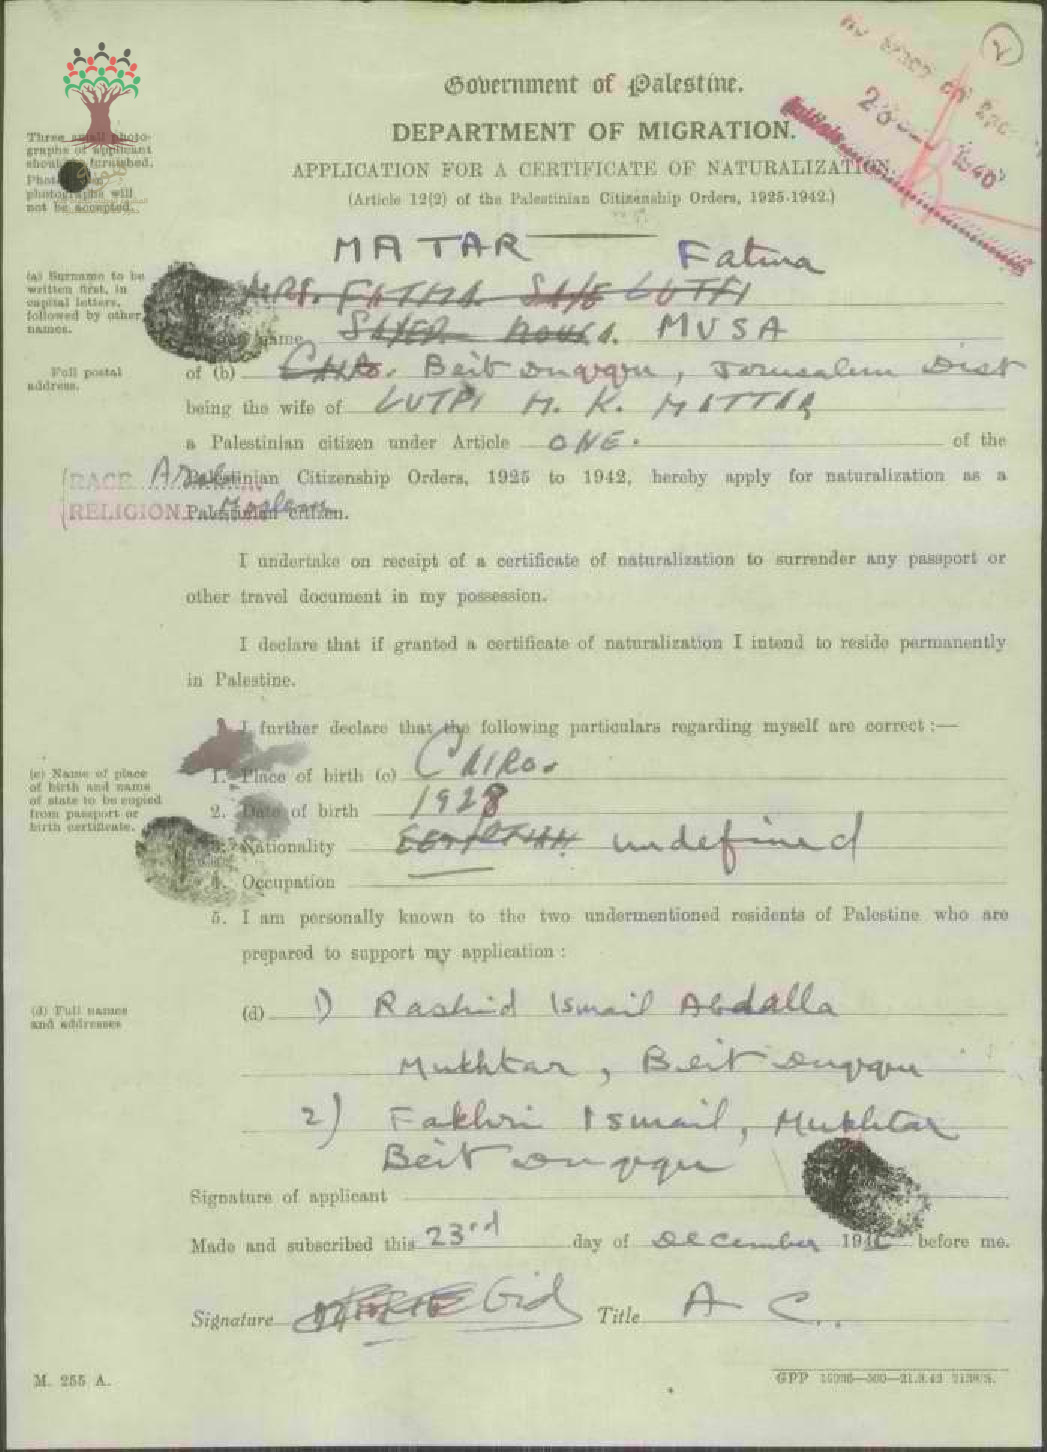 2
Government of Palestine.
DEPARTMENT OF MIGRATION.
APPLICATION FOR A CERTIFICATE OF NATURALIZATION
(Article 12(2) of the Palestinian Citizenship Orders, 1925-1942.)
Three small photo-
graphs of applicant
should furnished.
photographs will
not be accepted.
MATAR Fatma
(a) Surname to be
written first, in
capital letters,
followed by other
names.
MRS. FATMA LUTFI
name MUSA
(b) Full postal
address.
of (b) Beit Duqqu, Jerusalem Dist
being the wife of LUTFI M. K. MATTAR
a Palestinian citizen under Article ONE. of the
RACE Arab Palestinian Citizenship Orders, 1925 to 1942, hereby apply for naturalization as a
RELIGION Moslem Palestinian citizen.
I undertake on receipt of a certificate of naturalization to surrender any passport or
other travel document in my possession.
I declare that if granted a certificate of naturalization I intend to reside permanently
in Palestine.
I further declare that the following particulars regarding myself are correct :—
(c) Name of place
of birth and name
of state to be copied
from passport or
birth certificate.
1. Place of birth (c) CAIRO.
2. Date of birth 1928
3. Nationality EGYPTIAN undefined
4. Occupation
5. I am personally known to the two undermentioned residents of Palestine who are
prepared to support my application :
(d) Full names
and addresses
(d) 1) Rashid Ismail Abdalla
Mukhtar, Beit Duqqu
2) Fakhri Ismail, Mukhtar
Beit Duqqu
Signature of applicant
Made and subscribed this 23rd day of December 194 before me.
Signature Title A C.
M. 255 A.
GPP